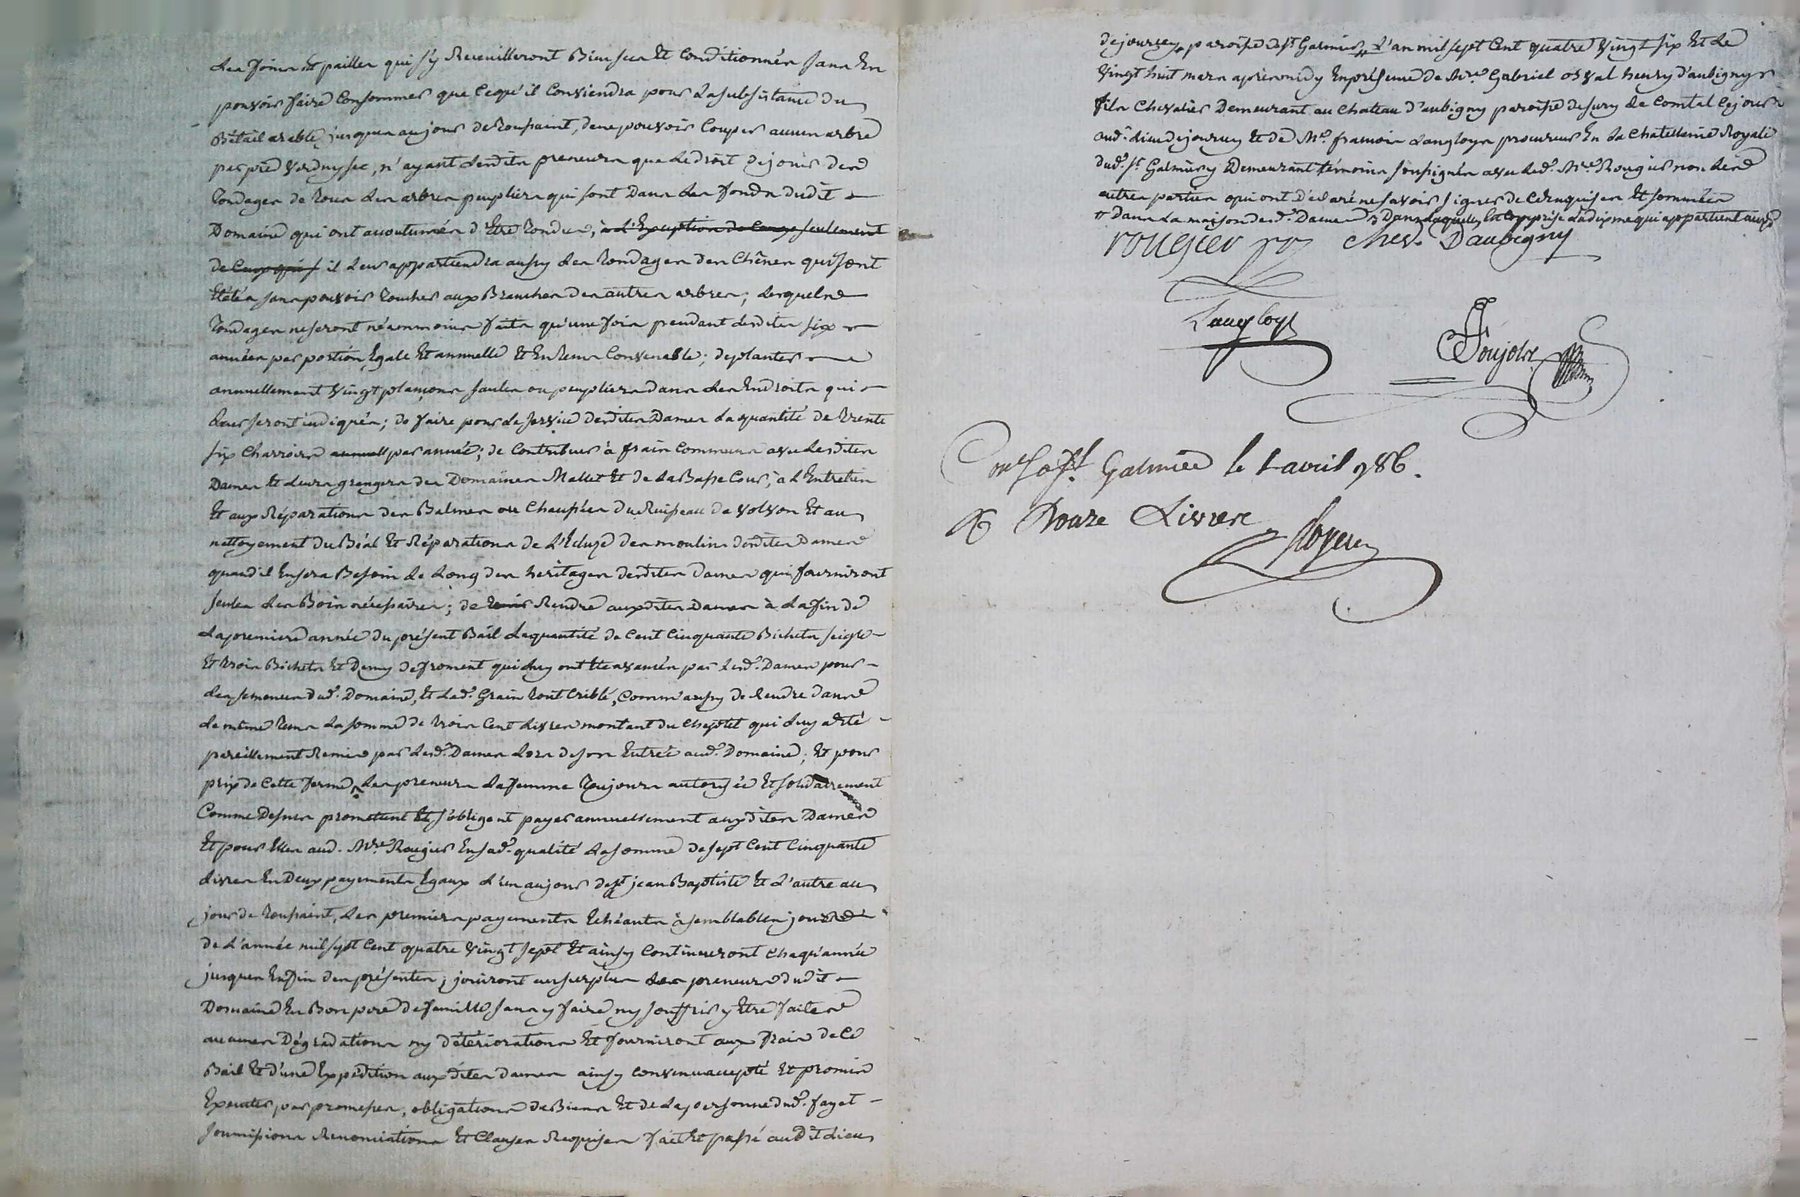 des foins et pailles qui s'y Receuilleront Bien secs Et Conditionnés sans En
pouvoir faire Consommer que ce qu'il Conviendra pour la subsistance du
Bétail arable jusques au jour de Toussaint, de ne pouvoir Couper aucun arbre
par pié verd ny sec, n'ayant lesdits preneurs que le droit de jouir des
Tondages de Tous les arbres peupliers qui sont Dans les fonds dudit
Domaine qui ont accoutumés d'Etre Tondus, à l'Exception de seulement
de il leur appartiendra aussy les Tondages des Chênes qui sont
Etétés sans pouvoir Toucher aux Branches des autres arbres; lesquels
Tondages ne seront néanmoins faits qu'une fois pendant lesdites six
années par portion Egale Et annuelle Et En tems Convenable; de planter
annuellement vingt plançons saules ou peupliers dans les Endroits qui
leur seront indiqués; de faire pour le service desdites Dames la quantité de Trente
six Charrois annuel par année; de Contribuer à frais Communs avec lesdites
Dames Et leurs grangers des Domaines Mallet Et de la Basse Cour, à l'Entretien
Et aux Réparations des Balmes ou Chaussées du Ruisseau de Volvon Et au
nettoyement du Béal Et Réparations de l'Ecluze des moulins desdites Dames
quand il En sera Besoin le Long des heritages desdites dames qui fourniront
seules les Bois nécessaires; de Rendre auxdites Dames à la fin de
la premiere année du présent Bail la quantité de Cent Cinquante Bichets seigle
Et trois Bichets Et Demy de froment qui luy ont Eté avancés par lesd. Dames pour
les semences dud. Domaine, Et led. Grain Tout Criblé, Comme aussy de Rendre dans
le même Tems la somme de Trois Cent Livres montant du Cheptel qui luy a Eté
pareillement Remis par lesd. Dames Lors de son Entrée aud. Domaine; Et pour
prix de Cette ferme, les preneurs la femme Toujours autorisée Et solidairement
Comme Dessus promettent Et s'obligent payer annuellement auxdites Dames
Et pour Elles aud. Mre Rougier En sad. qualité la somme de sept Cent Cinquante
Livres En Deux payements Egaux l'un au jour de st jean Baptiste Et l'autre au
jour de Toussaint, les premiers payements Echéants à semblables jours
de l'année mil sept Cent quatre vingt sept Et ainsy Continueront Chaqu'année
jusques En fin des présentes; jouiront au surplus les preneurs dudit
Domaine En Bon pere de famille sans y faire ny souffrir y Etre faites
aucunes Dégradations ny détériorations Et fourniront aux frais de Ce
Bail Et d'une Expédition auxdites dames ainsy convenu accepté Et promis
Exécuter par promesses, obligations de Biens Et de la personne dud. fayet
soumissions Renonciations Et Clauses Requises fait Et passé audit Lieu
de jourcey paroisse de st Galmier L'an mil sept Cent quatre vingt six Et le
vingt huit mars après midy En présence de Mre Gabriel osval henry d'aubigny
fils Chevalier Demeurant au Chateau d'aubigny paroisse de sury le Comtal Ce jour
aud. lieu de jourcey Et de Me françois Langloys procureur En la Chatellenie Royale
dud. st Galmier y Demeurant témoins soussignés avec led. Mre Rougier non les
autres parties qui ont déclaré ne savoir signer de Ce Enquises Et sommées
Dans la maison desd. Dames Dans Laquelle Est Comprise la dixme qui appartient auxd.
rougier ptre chev. Daubigny
Langloys
Poujolre
Con. à st. Galmier le 1 avril 786.
R Douze Livres
Royere